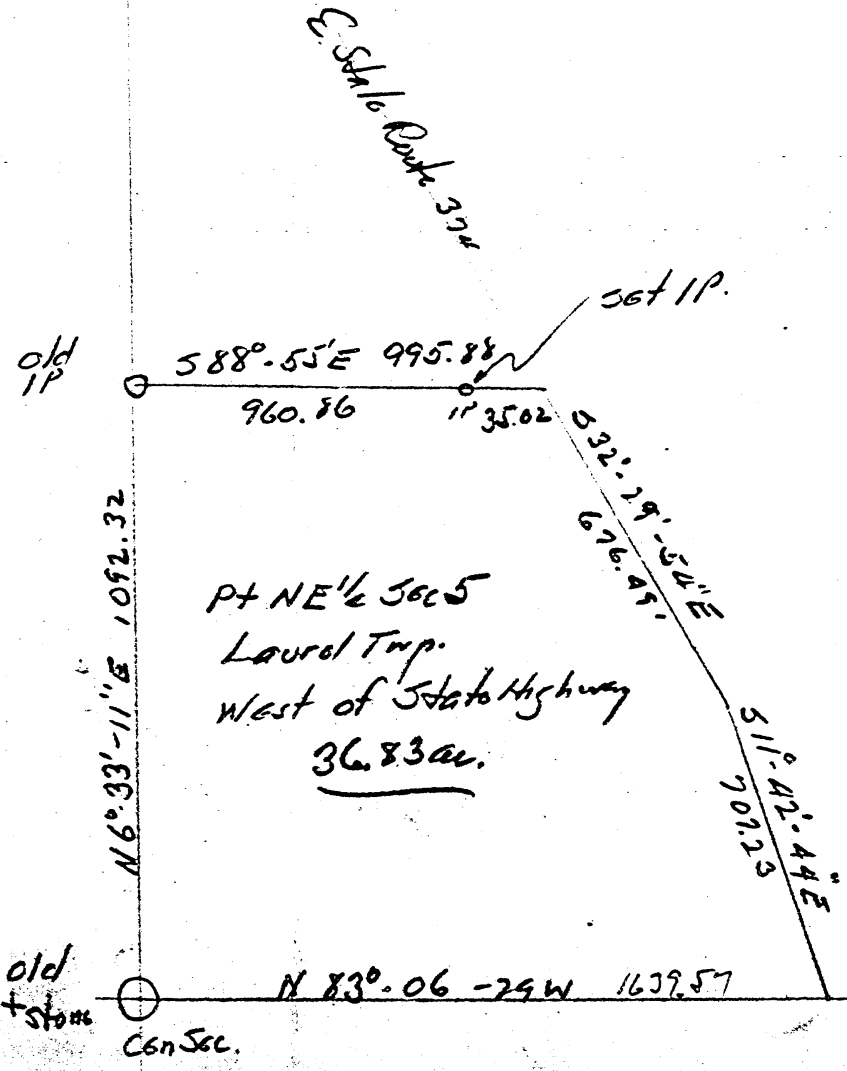 E. State Route 374
Set IP.
old
IP
S 88°-55'E 995.88
960.86
IP 35.02
S 32°-29'-54"E
676.49'
N 6°-33'-11"E 1092.32
Pt NE 1/4 Sec 5
Laurel Twp.
West of State Highway
36.83 ac.
S 11°-42'-44"E
707.23
old
+ Stone
N 83°-06-29 W 1639.57
Cen Sec.